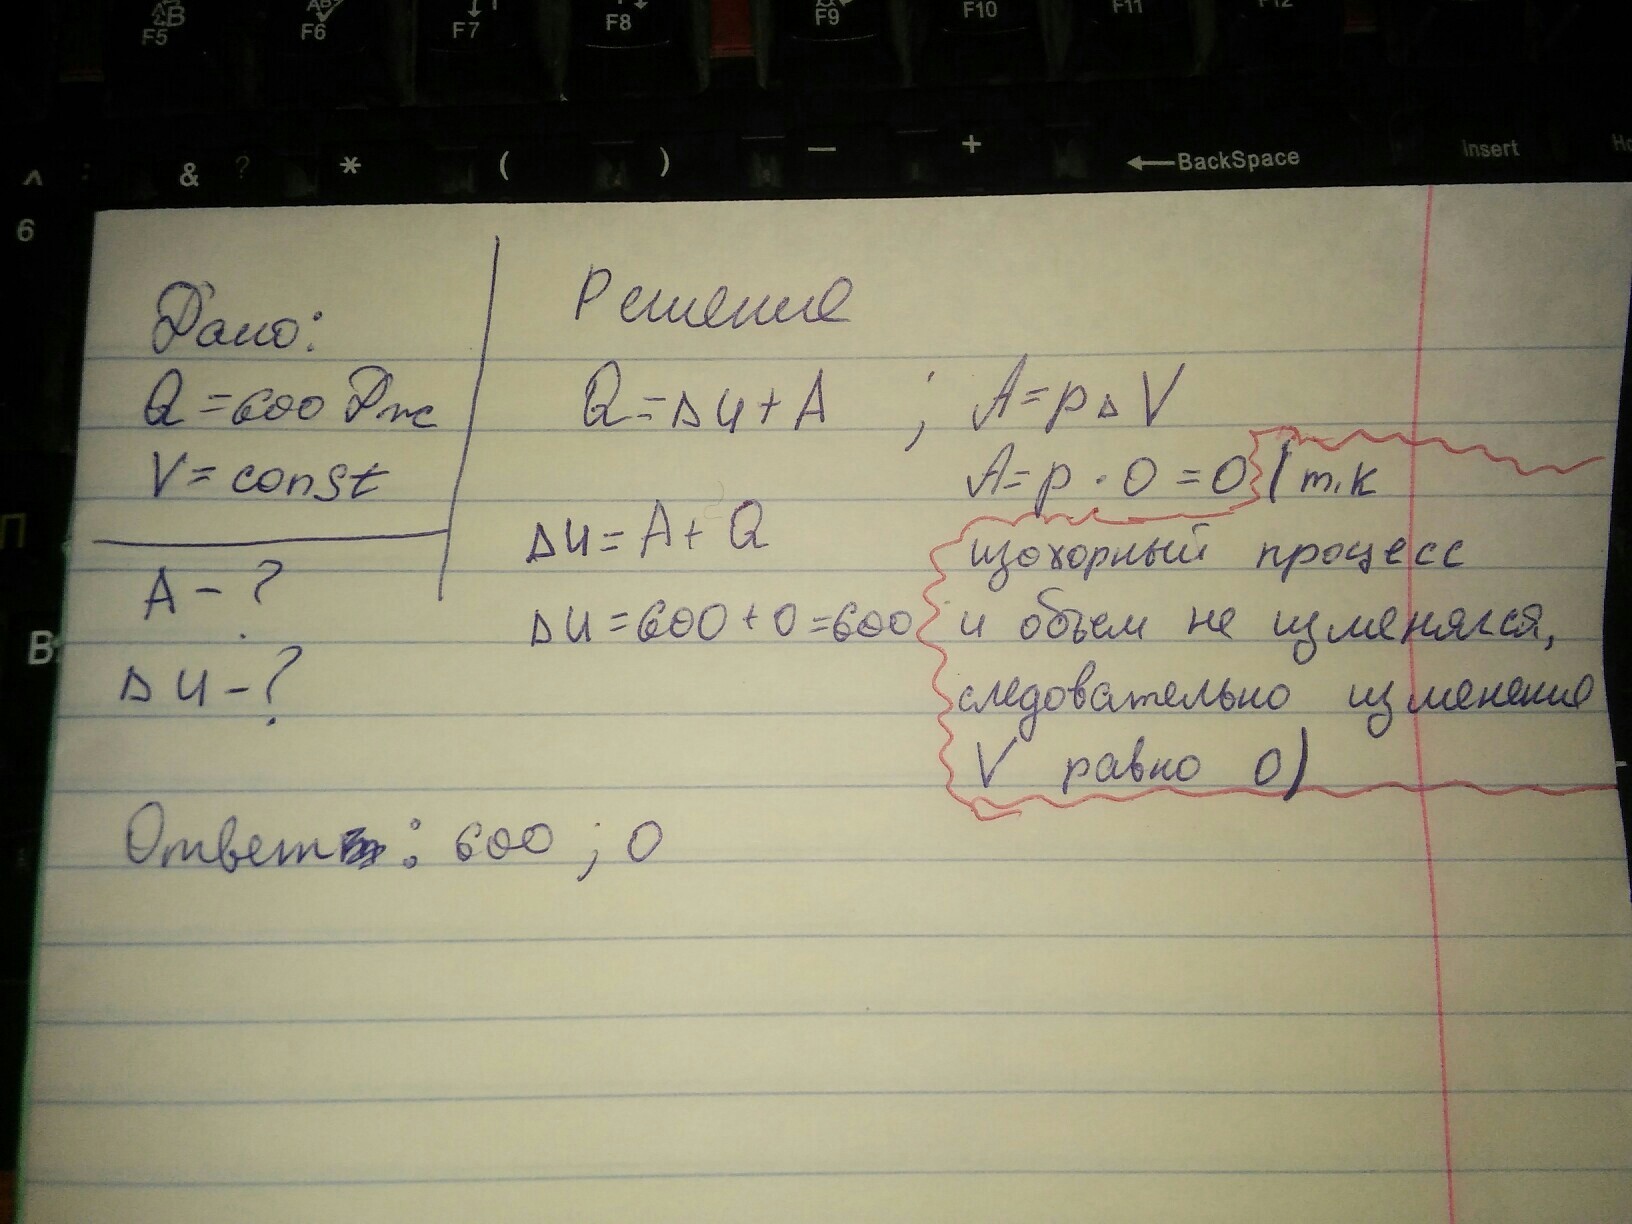 F5 F6 F7 F8 F9 F10 F11 F12
^ & ? * ( ) — + ←BackSpace Insert
6
Дано:
Q = 600 Дж
V = const
A - ?
Δu - ?
Решение
Q = Δu + A ; A = pΔV
A = p · 0 = 0 (т.к
изохорный процесс
и объем не изменялся,
следовательно изменение
V равно 0)
Δu = A + Q
Δu = 600 + 0 = 600
Ответ: 600 ; 0